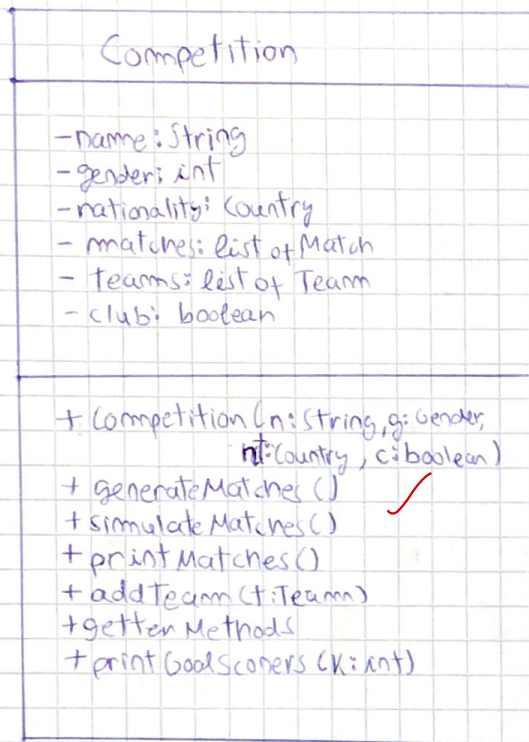 Competition
-name: String
-gender: int
-nationality: Country
- matches: list of Match
- teams: list of Team
- club: boolean
+ Competition (n: String, g: Gender,
nt: Country, c: boolean)
+ generateMatches ()
+ simulateMatches()
+ printMatches()
+ addTeam (t: Team)
+getter Methods
+printGoalScorers (k: int)